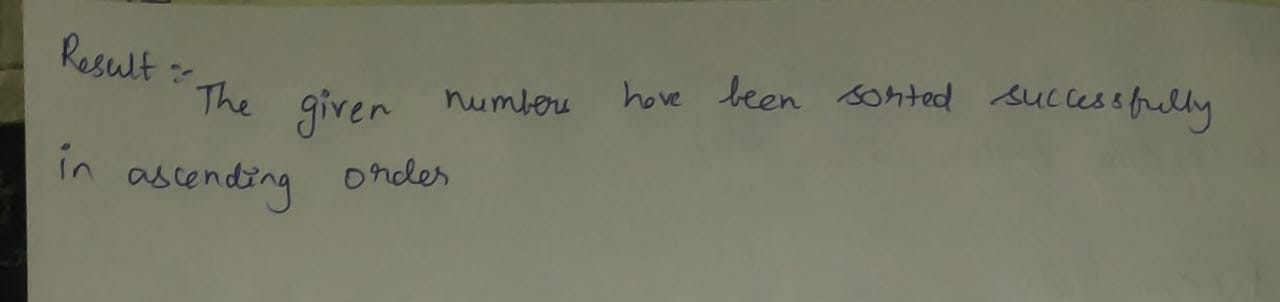 Result :-
The given numbers have been sorted successfully
in ascending order